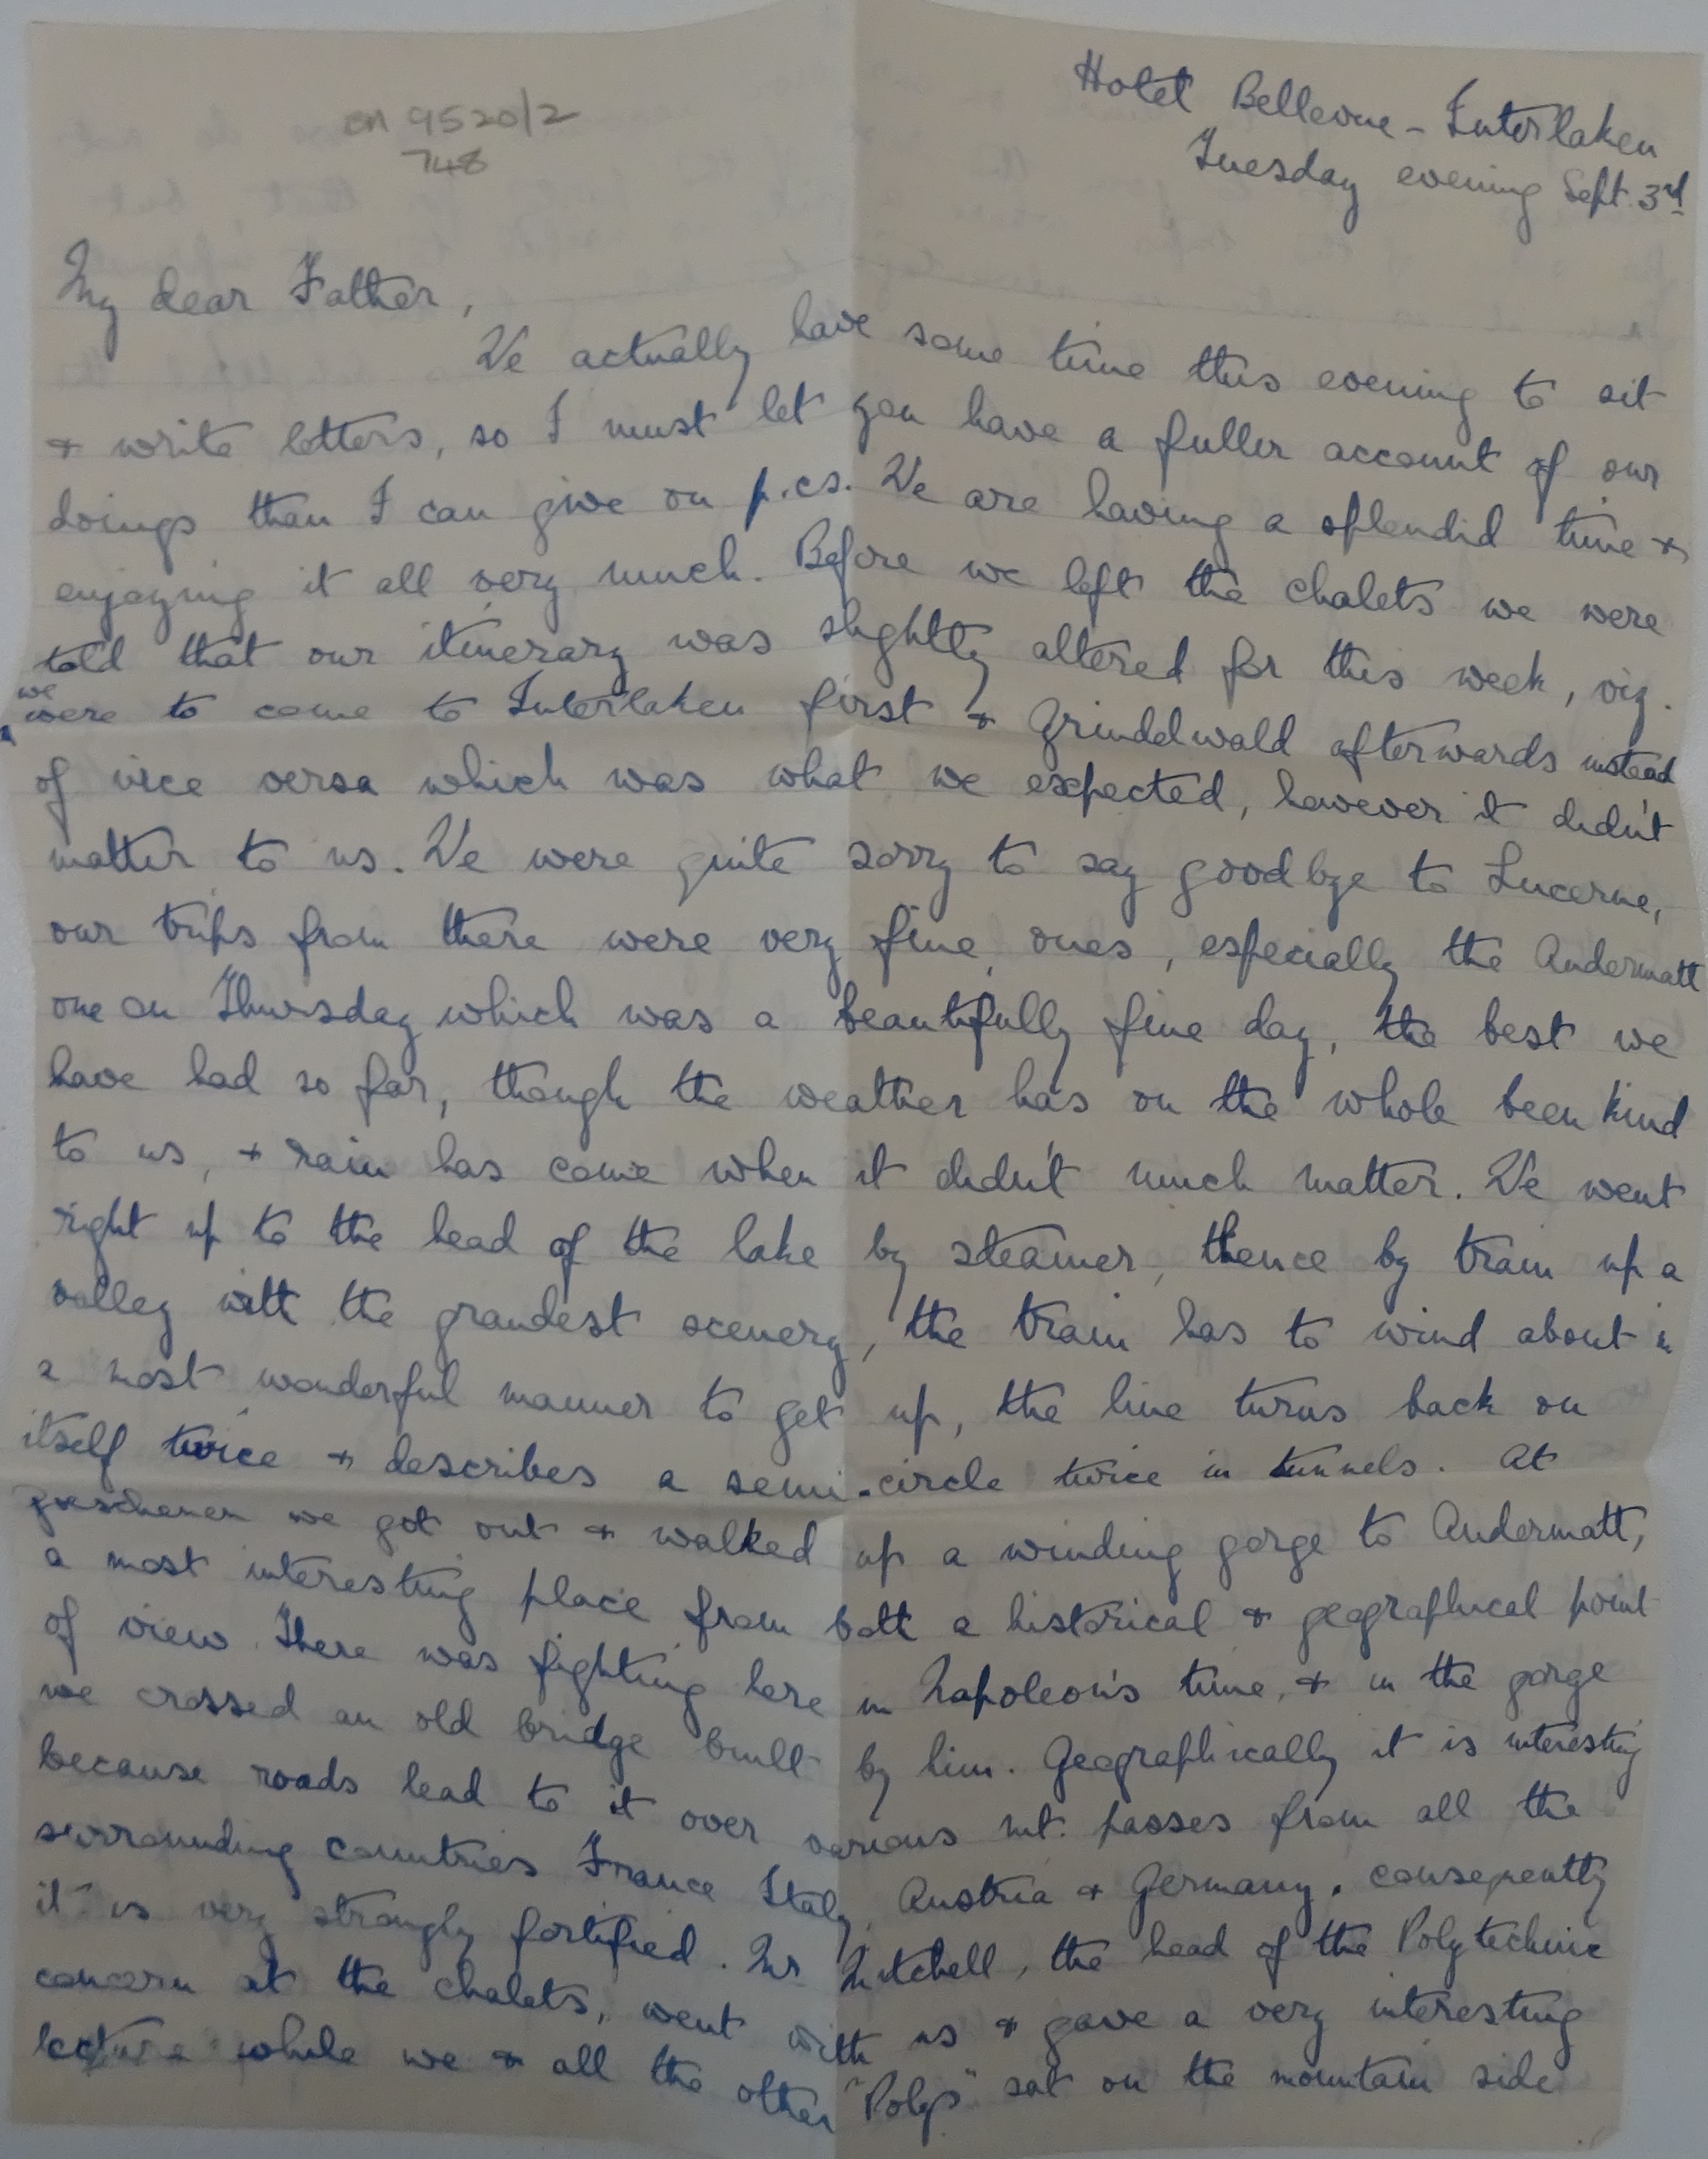 9520/2
748
Hotel Bellevue - Interlaken
Tuesday evening Sept. 3rd
My dear Father,
We actually have some time this evening to sit
+ write letters, so I must let you have a fuller account of our
doings than I can give on p.cs. We are having a splendid time +
enjoying it all very much. Before we left the chalets we were
told that our itinerary was slightly altered for this week, viz.
we
were to come to Interlaken first + Grindelwald afterwards instead
of vice versa which was what we expected, however it didn't
matter to us. We were quite sorry to say goodbye to Lucerne,
our trips from there were very fine ones, especially the Andermatt
one on Thursday which was a beautifully fine day, the best we
have had so far, though the weather has on the whole been kind
to us, + rain has come when it didn't much matter. We went
right up to the head of the lake by steamer, thence by train up a
valley with the grandest scenery, the train has to wind about in
a most wonderful manner to get up, the line turns back on
itself twice + describes a semi-circle twice in tunnels. At
Goeschenen we got out + walked up a winding gorge to Andermatt,
a most interesting place from both a historical + geographical point
of view. There was fighting here in Napoleon's time, + in the gorge
we crossed an old bridge built by him. Geographically it is interesting
because roads lead to it over various mt. passes from all the
surrounding countries France Italy, Austria + Germany, consequently
it is very strongly fortified. Mr Mitchell, the head of the Polytechnic
concern at the chalets, went with us + gave a very interesting
lecture while we + all the other "Polys" sat on the mountain side